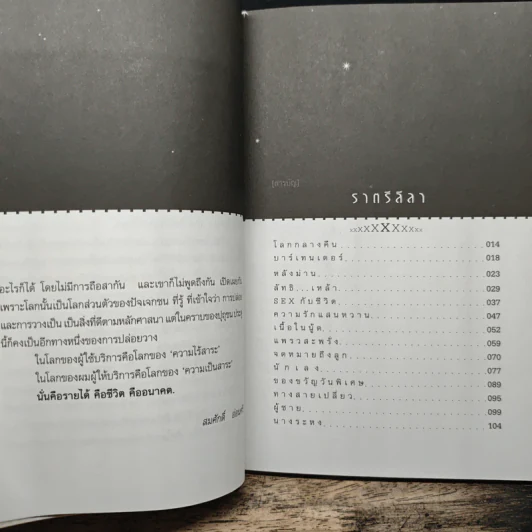 อะไรก็ได้ โดยไม่มีการถือสากัน และเขาก็ไม่พูดถึงกัน
เพราะโลกนั้นเป็นโลกส่วนตัวของปัจเจกชน ที่รู้ ที่เข้าใจว่า
และการวางเป็น เป็นสิ่งที่ดีตามหลักศาสนา แต่ในคราบของปุถุชน
นี้ก็คงเป็นอีกทางหนึ่งของการปล่อยวาง
ในโลกของผู้ใช้บริการคือโลกของ ‘ความไร้สาระ’
ในโลกของผมผู้ให้บริการคือโลกของ ‘ความเป็นสาระ’
นั่นคือรายได้ คือชีวิต คืออนาคต.
สมศักดิ์
[สารบัญ]
ราตรีลีลา
xxXXXXXXxxx
โลกกลางคืน 014
บาร์เทนเดอร์ 018
หลังม่าน 023
ลัทธิ...เหล้า 029
SEX กับชีวิต 037
ความรักแสนหวาน 047
เนื้อในนู้ด 052
แพรวสะพรั่ง 059
จดหมายถึงลูก 070
นักเลง 077
ของขวัญวันพิเศษ 089
ทางสายเปลี่ยว 095
ผู้ชาย 099
นางระหง 104